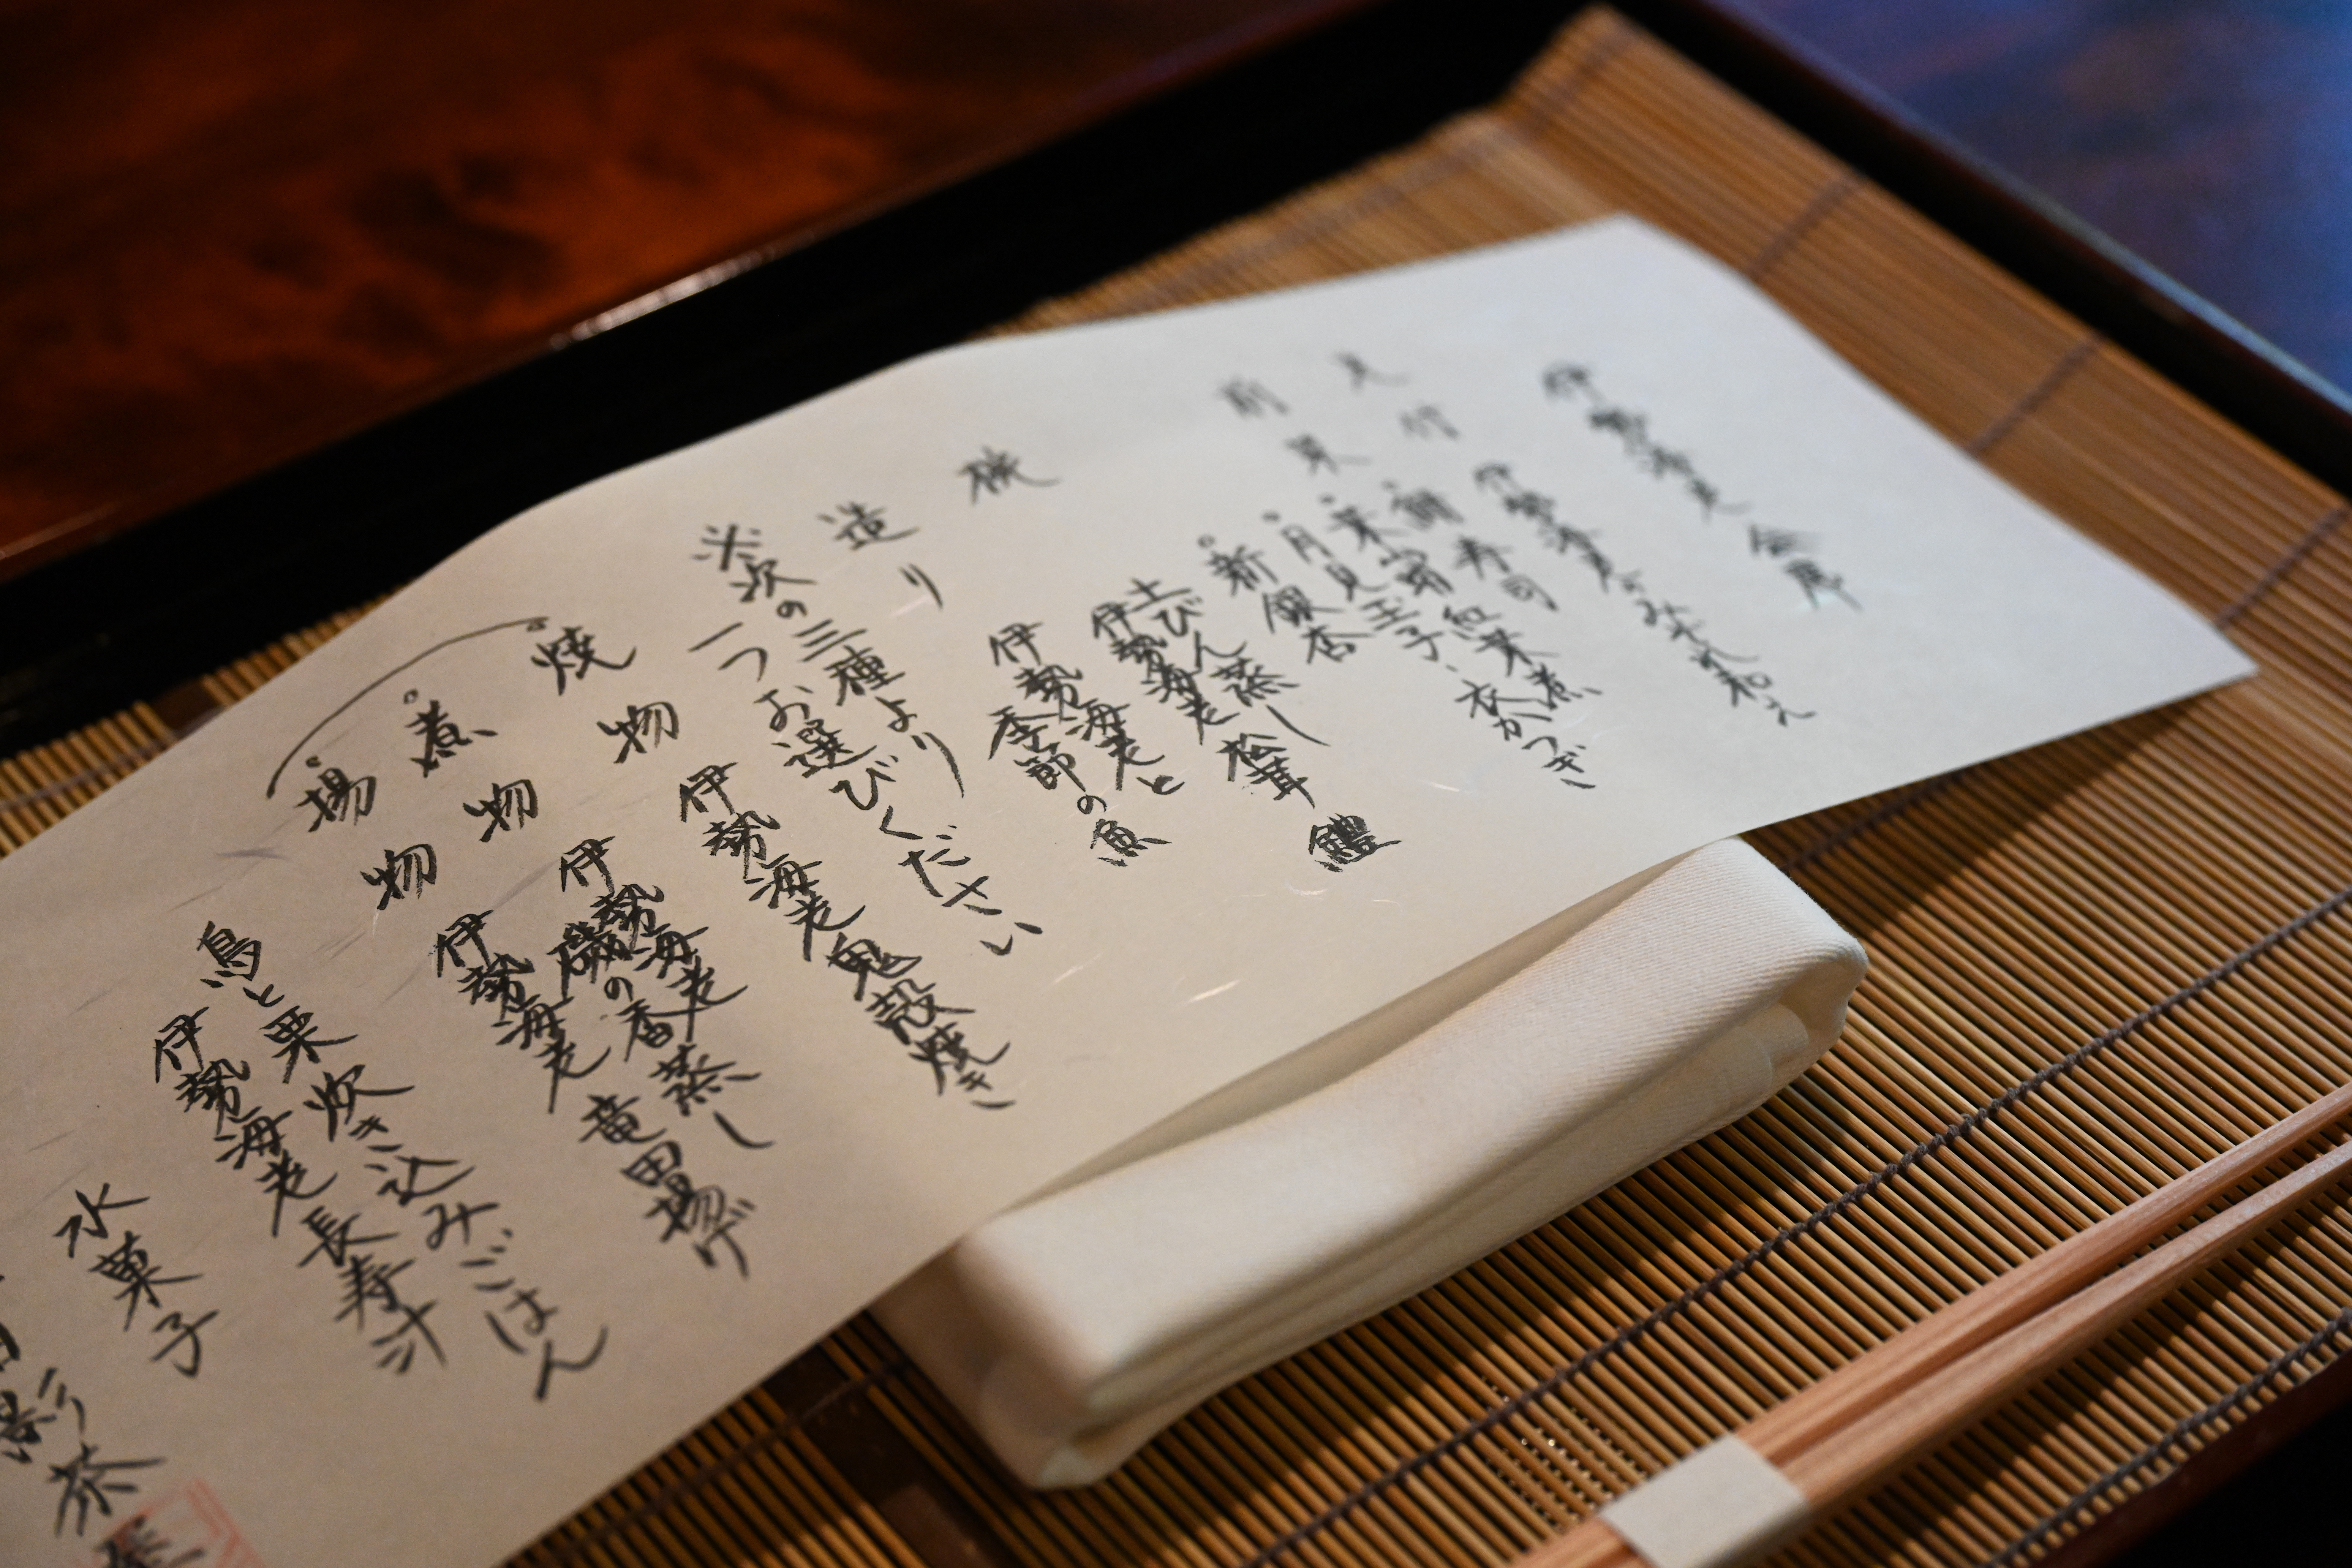 伊勢海老会席
先付 伊勢海老みぞれ和え
前菜 ・鯛寿司
紅葉煮
・月見玉子、衣かつぎ
・新銀杏
椀 土びん蒸し 松茸 鱧
伊勢海老
造り 伊勢海老と
季節の魚
※次の三種より
一つお選びください
焼物 伊勢海老鬼殻焼き
煮物 伊勢海老
磯の香蒸し
揚物 伊勢海老 竜田揚げ
鳥と栗炊き込みごはん
伊勢海老長寿汁
水菓子
影茶